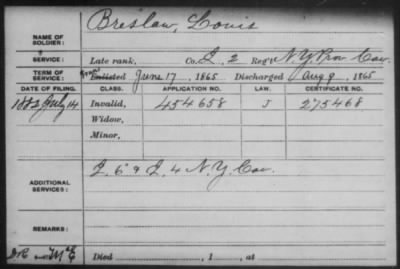 Breslaw, Louis
NAME OF SOLDIER:
SERVICE: Late rank, Co. I, 2 Reg't N.Y. Prov Cav.
TERM OF SERVICE: Enlisted June 17, 1865 Discharged Aug 9, 1865
DATE OF FILING. CLASS. APPLICATION NO. LAW. CERTIFICATE NO.
1882 July 14 Invalid, 454658 J 275468
Widow,
Minor,
ADDITIONAL SERVICES: I. 6 & I. 4 N.Y. Cav.
REMARKS:
Died , 1 , at